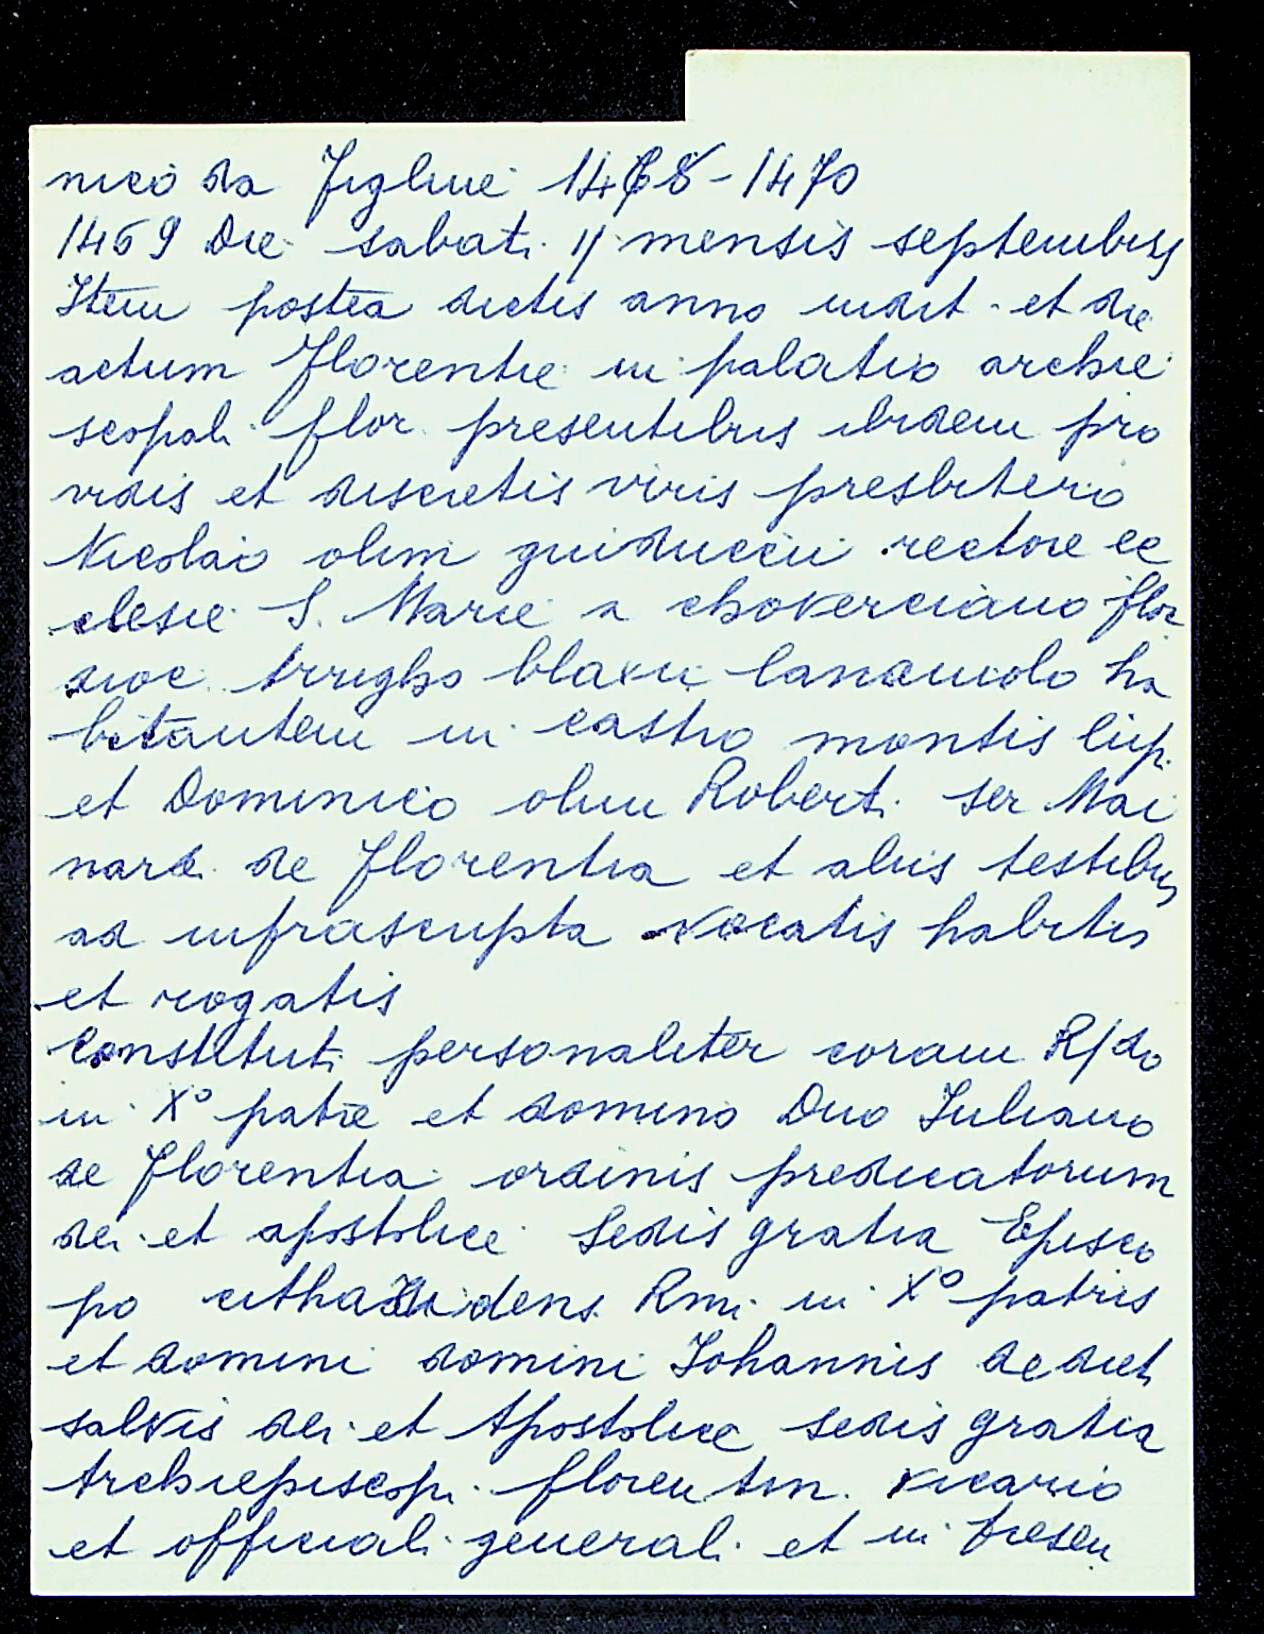 nico da Figline 1468-1470
1469 Die sabati 11 mensis septembris
Item postea dictis anno indit. et die
actum Florentie in palatio archie
scopali flor. presentibus ibidem pro
vidis et discretis viris presbitero
Nicolaio olim guiduccii rectore ec
clesie S. Marie a choverciano flor
dioc. Arrigho blaxii lanaiuolo ha
bitantem in castro montis lup.
et Dominico olim Roberti ser Mai
nardi de Florentia et aliis testibus
ad infrascripta vocatis habitis
et rogatis
Constituti personaliter coram R/do
in Xº patre et domino Dno Iuliano
de Florentia ordinis predicatorum
dei et apostolice Sedis gratia Episco
po citharidens Rmi in Xº patris
et domini domini Iohannis dediet
salvis dei et Apostolice sedis gratia
Archiepiscopi florentin. vicario
et officiali generali et in presen